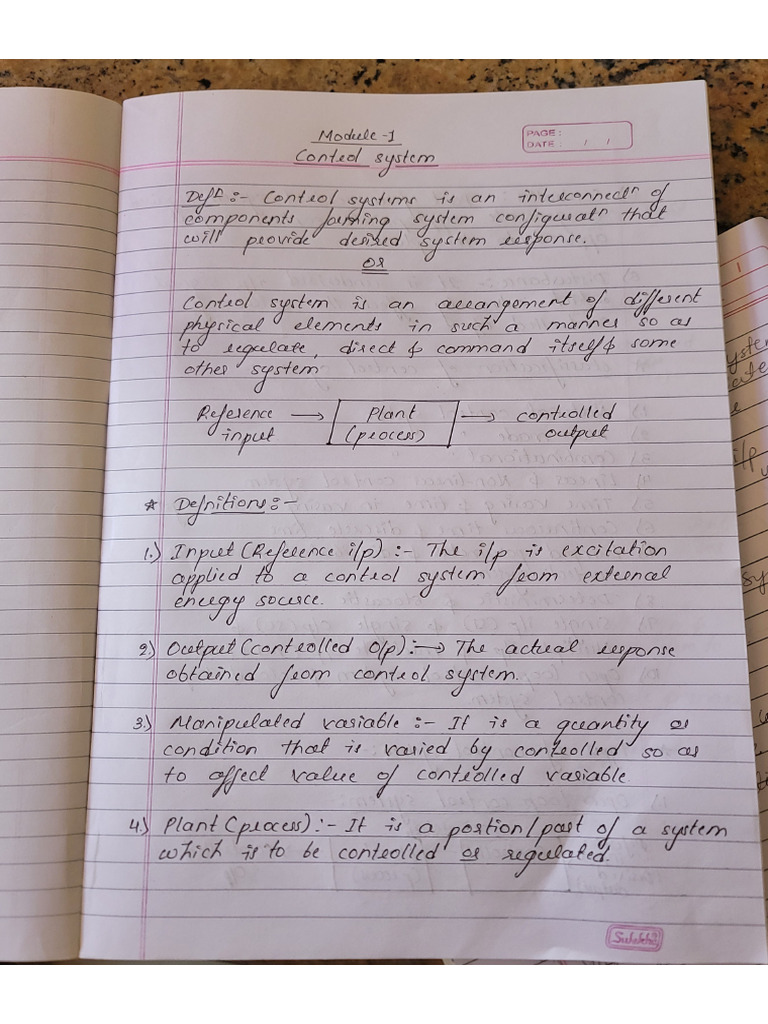 Module-1
PAGE :
DATE : / /
Control system
Defn :- Control systems is an interconnectn of
components forming system configuratn that
will provide desired system response.
OR
Control system is an arrangement of different
physical elements in such a manner so as
to regulate, direct & command itself & some
other system
Reference input → Plant (process) → controlled output
* Definitions :-
1.) Input (Reference i/p) :- The i/p is excitation
applied to a control system from external
energy source.
2.) Output (controlled o/p) :→ The actual response
obtained from control system.
3.) Manipulated variable :- It is a quantity or
condition that is varied by controlled so as
to affect value of controlled variable.
4.) Plant (process) :- It is a portion/part of a system
which is to be controlled or regulated.